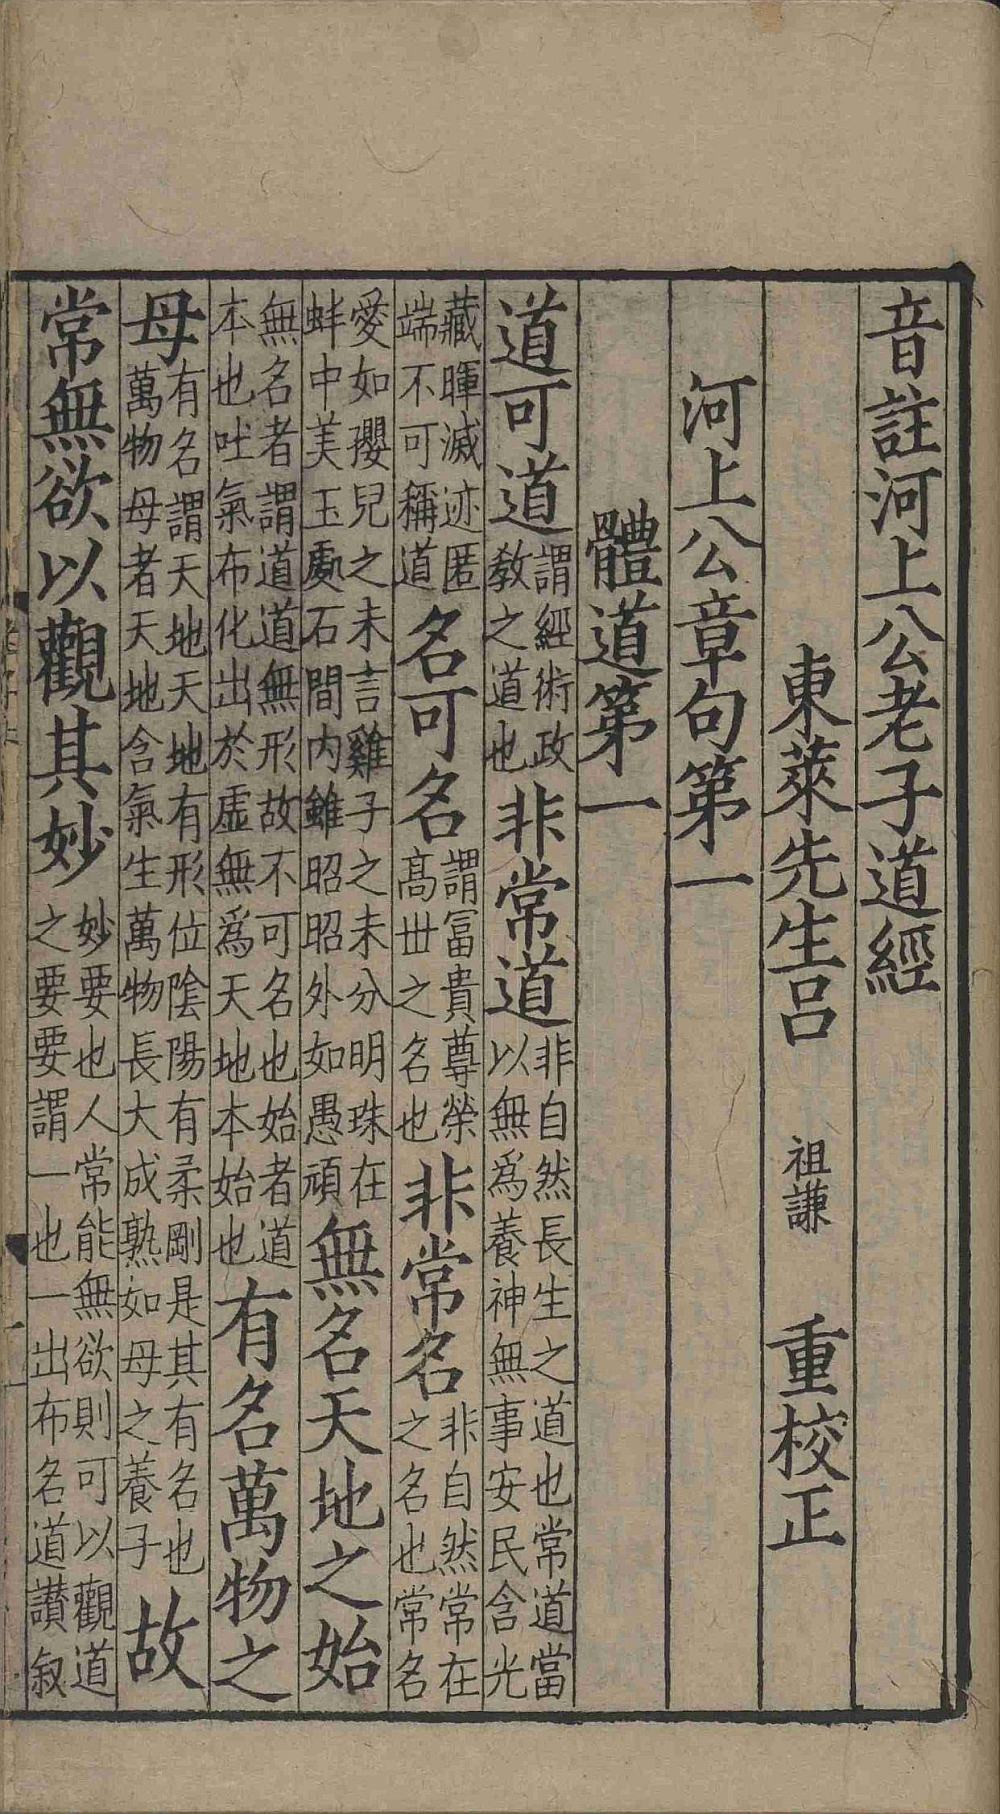 音註河上公老子道經
東萊先生呂 祖謙 重校正
河上公章句第一
體道第一
道可道謂經術政教之道也非常道非自然長生之道也常道當以無爲養神無事安民含光
藏暉滅迹匿端不可稱道名可名謂富貴尊榮高世之名也非常名非自然常在之名也常名
愛如孾兒之未言雞子之未分明珠在蚌中美玉處石間内雖昭昭外如愚頑無名天地之始
無名者謂道道無形故不可名也始者道本也吐氣布化出於虛無爲天地本始也有名萬物之
母有名謂天地天地有形位陰陽有柔剛是其有名也萬物母者天地含氣生萬物長大成熟如母之養子故
常無欲以觀其妙妙要也人常能無欲則可以觀道之要要謂一也一出布名道讃叙